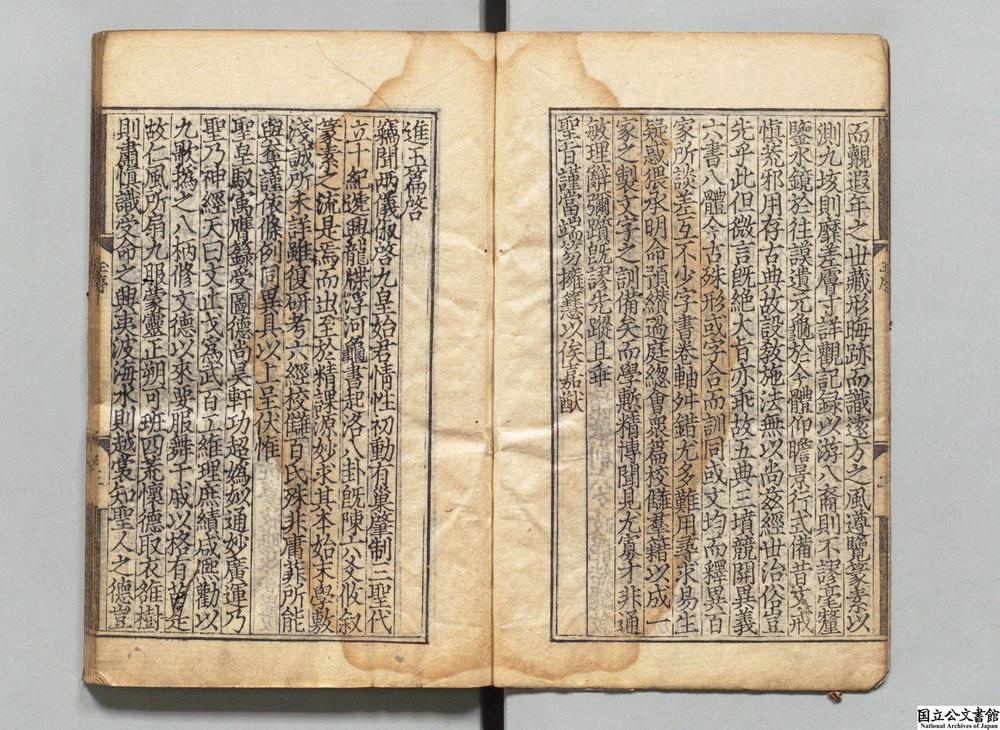 而觀遐年之世藏形晦跡而識遠方之風遵覽篆素以
測九垓則靡差膚寸詳觀記録以游八裔則不謬毫釐
鑒水鏡於往謨遺元龜於今體仰瞻景行式備昔文戒
慎荒邪用存古典故設教施法無以尚兹經世治俗豈
先乎此但微言旣絶大旨亦乖故五典三墳競開異義
六書八體今古殊形或字各而訓同或文均而釋異百
家所談差互不少字書卷軸舛錯尤多難用尋求易生
疑惑猥承明命預纉過庭總會衆篇校讎羣籍以成一
家之製文字之訓備矣而學慙精博聞見尤寡才非通
敏理辭彌躓旣謬先蹤且乖
聖旨謹當端笏擁篲以俟嘉猷
進玉篇啓
竊聞兩儀俶啓九皇始君情性初動有巢肇制三聖代
立十紀遞興龍牒浮河龜書起洛八卦旣陳六爻攸叙
篆素之流是焉而出至於精課源妙求其本始末學敷
淺誠所未詳雖復研考六經校讎百氏殊非庸菲所能
與奪謹依條例同異具以上呈伏惟
聖皇馭㝢膺籙受圖德尚昊軒功超嬀姒通妙廣運乃
聖乃神經天曰文止戈爲武百工維理庶績咸熈勸以
九歌撝之八柄修文德以來要服舞干戚以格有苗是
故仁風所扇九服蒙靈正朔可班四荒懷德取衣雒樹
則肅愼識受命之興重波海水則越裳知聖人之德豈
玉序
國立公文書館
National Archives of Japan